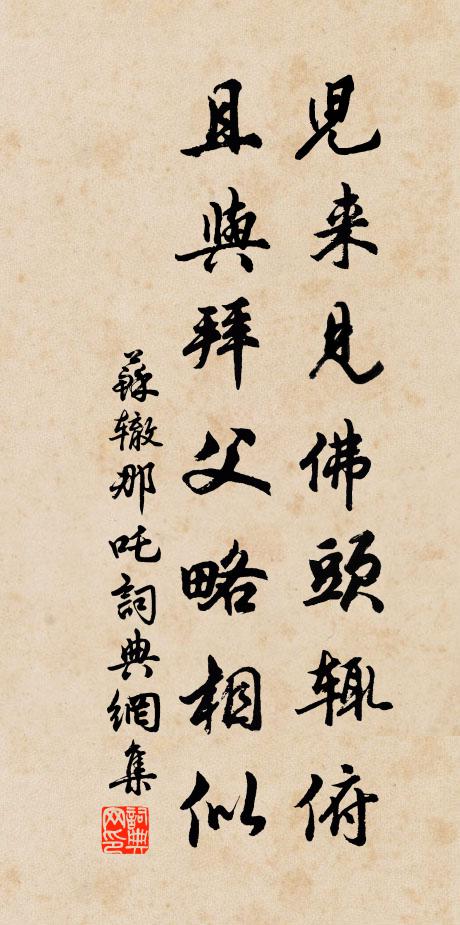 児来見佛頭輙俯
且與拜父略相似
蘇辙那吒詞典網集
詞典网印